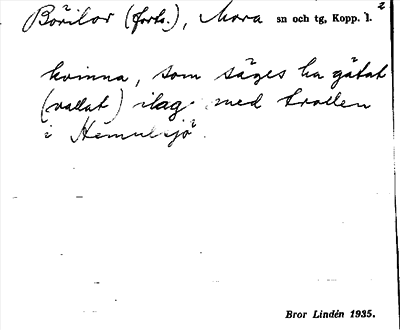 Börilor (forts.), Mora sn och tg, Kopp. l. 2
kvinna, som säges ha gätat
(vallat) ilag med trollen
i Hemulsjö.
Bror Lindén 1935.